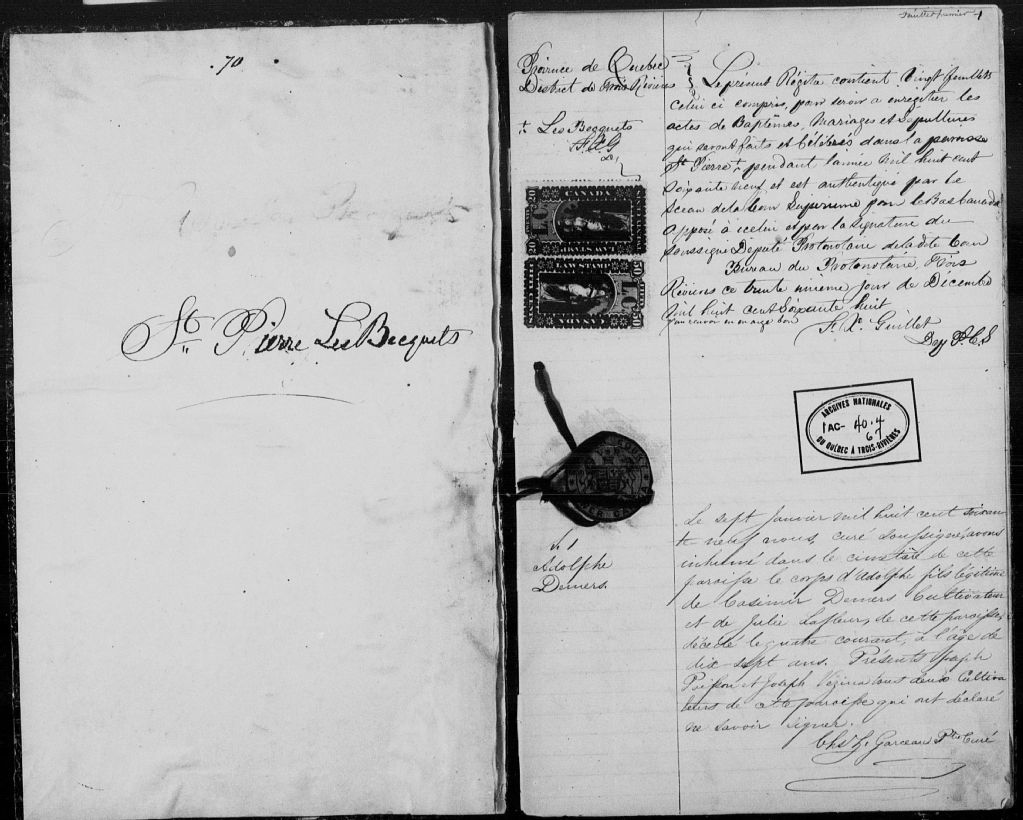 . 70
St Pierre Les Becquets
Feuillet premier 1
Province de Quebec
District de Trois Rivières
+ Les Becquets
Le présent Régitre contient Vingt feuillets
celui ci compris, pour servir a enregitrer les
actes de Baptêmes, Mariages et Sépultures
qui seront faits et Célébrés dans la paroisse
St Pierre + pendant l'année mil huit cent
soixante neuf et est authentiqué par le
sceau de la Cour Supérieure pour le Bas Canada
apposé à icelui et par la signature du
soussigné Député Protonotaire de la dite Cour
Bureau du Protonotaire, Trois
Rivières ce trente unieme jour de Décembre
mil huit cent Soixante huit
F. X. Guillet
Dep P. C. S
20 CANADA 20
LAW STAMP
LAW STAMP
CANADA
ARCHIVES NATIONALES
1AC- 40.4
67
DU QUÉBEC À TROIS-RIVIÈRES
S. 1
Adolphe
Demers.
Le sept Janvier mil huit cent soixan
te neuf nous, curé soussigné, avons
inhumé dans le cimetière de cette
paroisse le corps d'Adolphe fils légitime
de Casimir Demers Cultivateur
et de Julie Lafleur, de cette paroisse,
décédé le quatre courant, à l'âge de
dix sept ans. Présents Joseph
Prisson et Joseph Vézina tous deux Cultiva
teurs de cette paroisse qui ont déclaré
ne savoir signer.
Chs Z. Garceau Ptre Curé